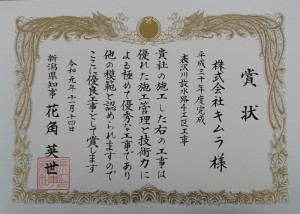 賞状
株式会社キムラ様
平成三十年度完成
表沢川放水路4工区工事
貴社の施工した右の工事は
優れた施工管理と技術力に
よる極めて優秀な工事であり
他の模範と認められますので
ここに優良工事として賞します
令和元年十一月十四日
新潟県知事 花角英世